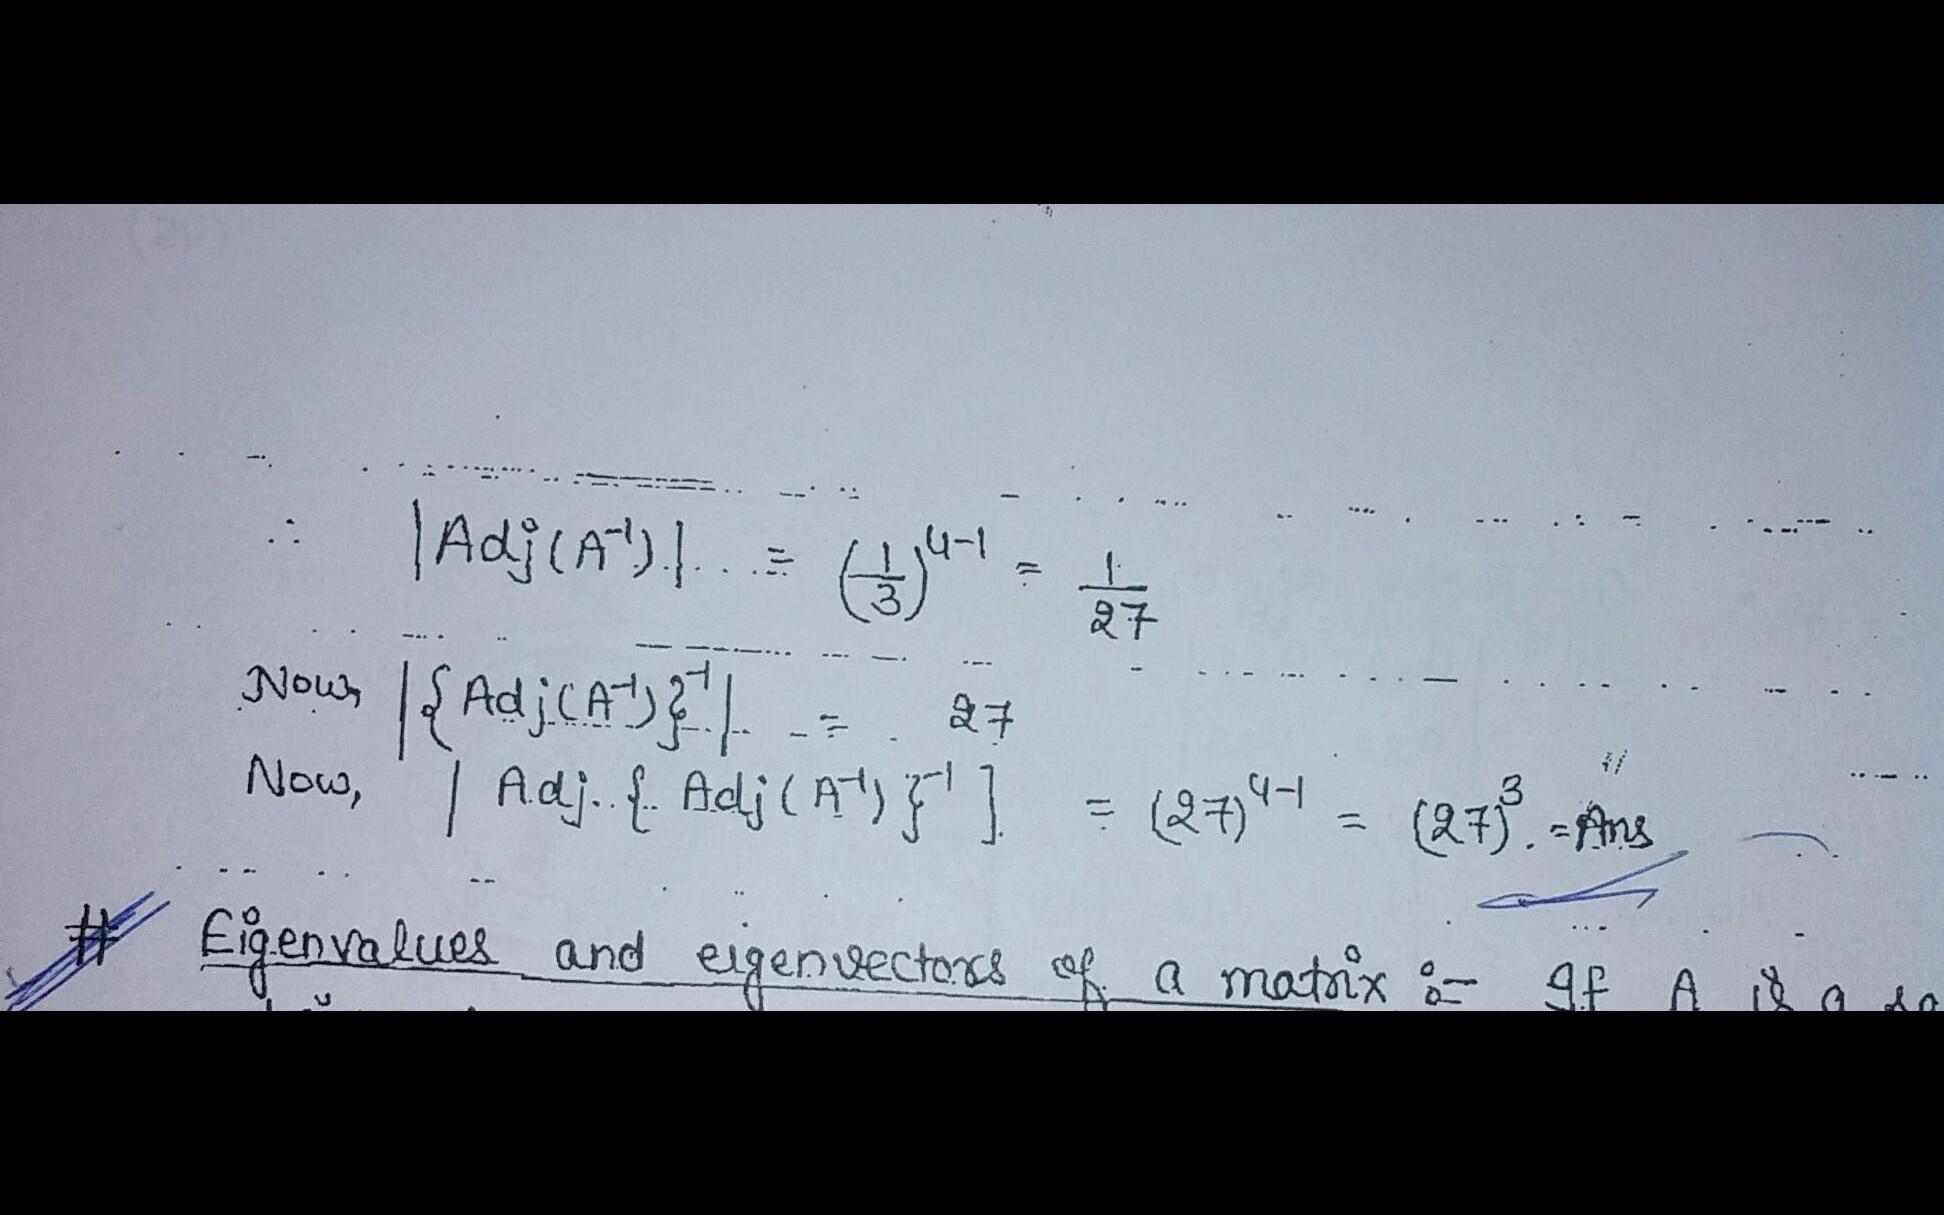 ∴ |Adj(A⁻¹)| = (1/3)⁴⁻¹ = 1/27
Now, |{Adj(A⁻¹)}⁻¹| = 27
Now, | Adj. { Adj(A⁻¹) }⁻¹ ] = (27)⁴⁻¹ = (27)³. = Ans
# Eigenvalues and eigenvectors of a matrix :- If A is a